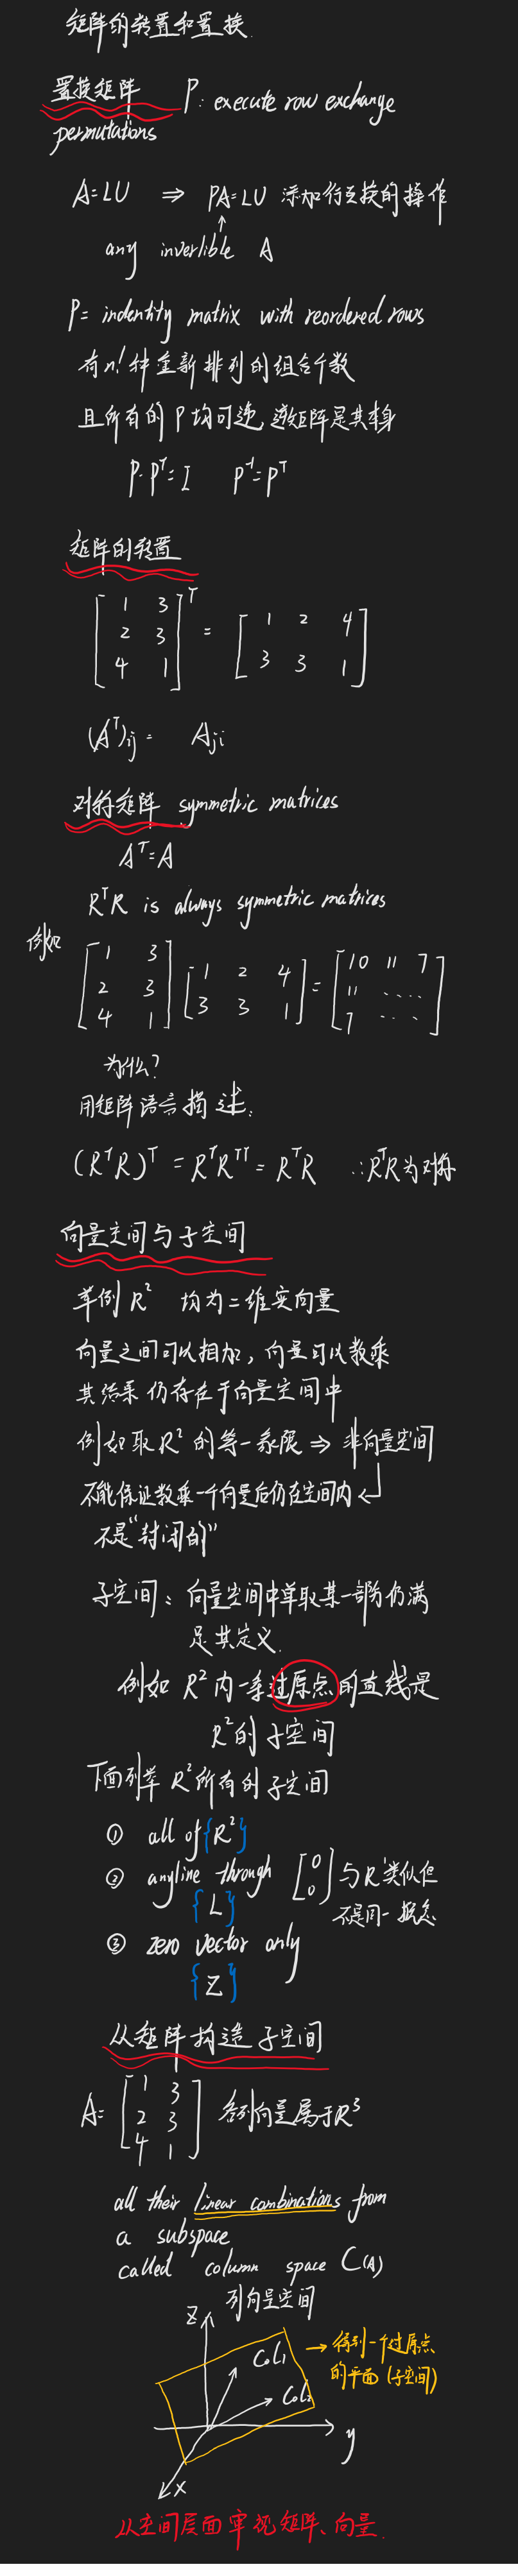 矩阵的转置和置换.
置换矩阵 P: execute row exchange
permutations
A=LU ⇒ PA=LU 添加行互换的操作
↑
any invertible A
P= indentity matrix with reordered rows
有n!种重新排列的组合个数
且所有的P均可逆 逆矩阵是其本身
P·Pᵀ=I P⁻¹=Pᵀ
矩阵的转置
[1 3
2 3
4 1]ᵀ = [1 2 4
3 3 1]
(Aᵀ)ij = Aji
对称矩阵 symmetric matrices
Aᵀ=A
RᵀR is always symmetric matrices
例如
[1 3
2 3
4 1] [1 2 4
3 3 1] = [10 11 7
11 ....
7 ...]
为什么?
用矩阵语言描述.
(RᵀR)ᵀ = RᵀRᵀᵀ = RᵀR ∴RᵀR为对称
向量空间与子空间
举例R² 均为二维实向量
向量之间可以相加, 向量可以数乘
其结果仍存在于向量空间中
例如取R²的第一象限 ⇒ 非向量空间
不能保证数乘一个向量后仍在空间内
不是“封闭的”
子空间: 向量空间中单取某一部分仍满
足其定义.
例如 R²内一条过原点的直线是
R²的子空间
下面列举 R²所有的子空间
① all of {R²}
② anyline through [0
0] 与R¹类似但
{L} 不是同一概念
③ zero vector only
{Z}
从矩阵构造子空间
A= [1 3
2 3
4 1] 各列向量属于R³
all their linear combinations from
a subspace
called column space C(A)
列向量空间
Z
Col₁
→ 得到一个过原点
的平面 (子空间)
Col₂
y
x
从空间层面审视矩阵、向量.